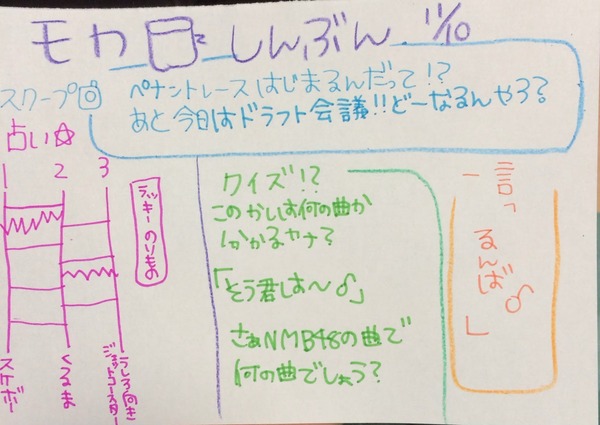 モカ しんぶん 11/10
スクープ
ペナントレースはじまるんだって!?
あと今日はドラフト会議!!どーなるんやろ?
占い☆
1 2 3
ラッキーのりもの
スケボー
くるま
うしろ向き
ジェットコースター
クイズ!?
このかしは何の曲か
わかるカナ?
「そう君は〜♂」
さぁNMB48の曲で
何の曲でしょう?
一言っ
るんば♂」